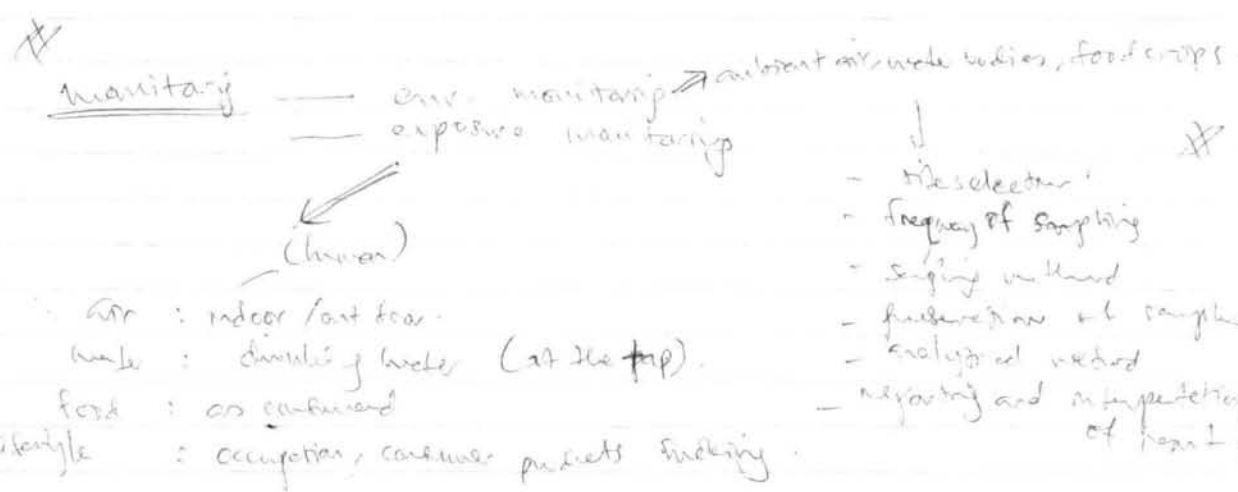 #
Monitoring — env. monitoring → ambient air, water bodies, food crops
— exposure monitoring
(human)
air : indoor / out door.
water : drinking water (at the tap).
food : as consumed
lifestyle : occupation, consumer products smoking.
#
- site selection
- frequency of sampling
- method
- preservation of sample
- analytical method
- reporting and interpretation
of